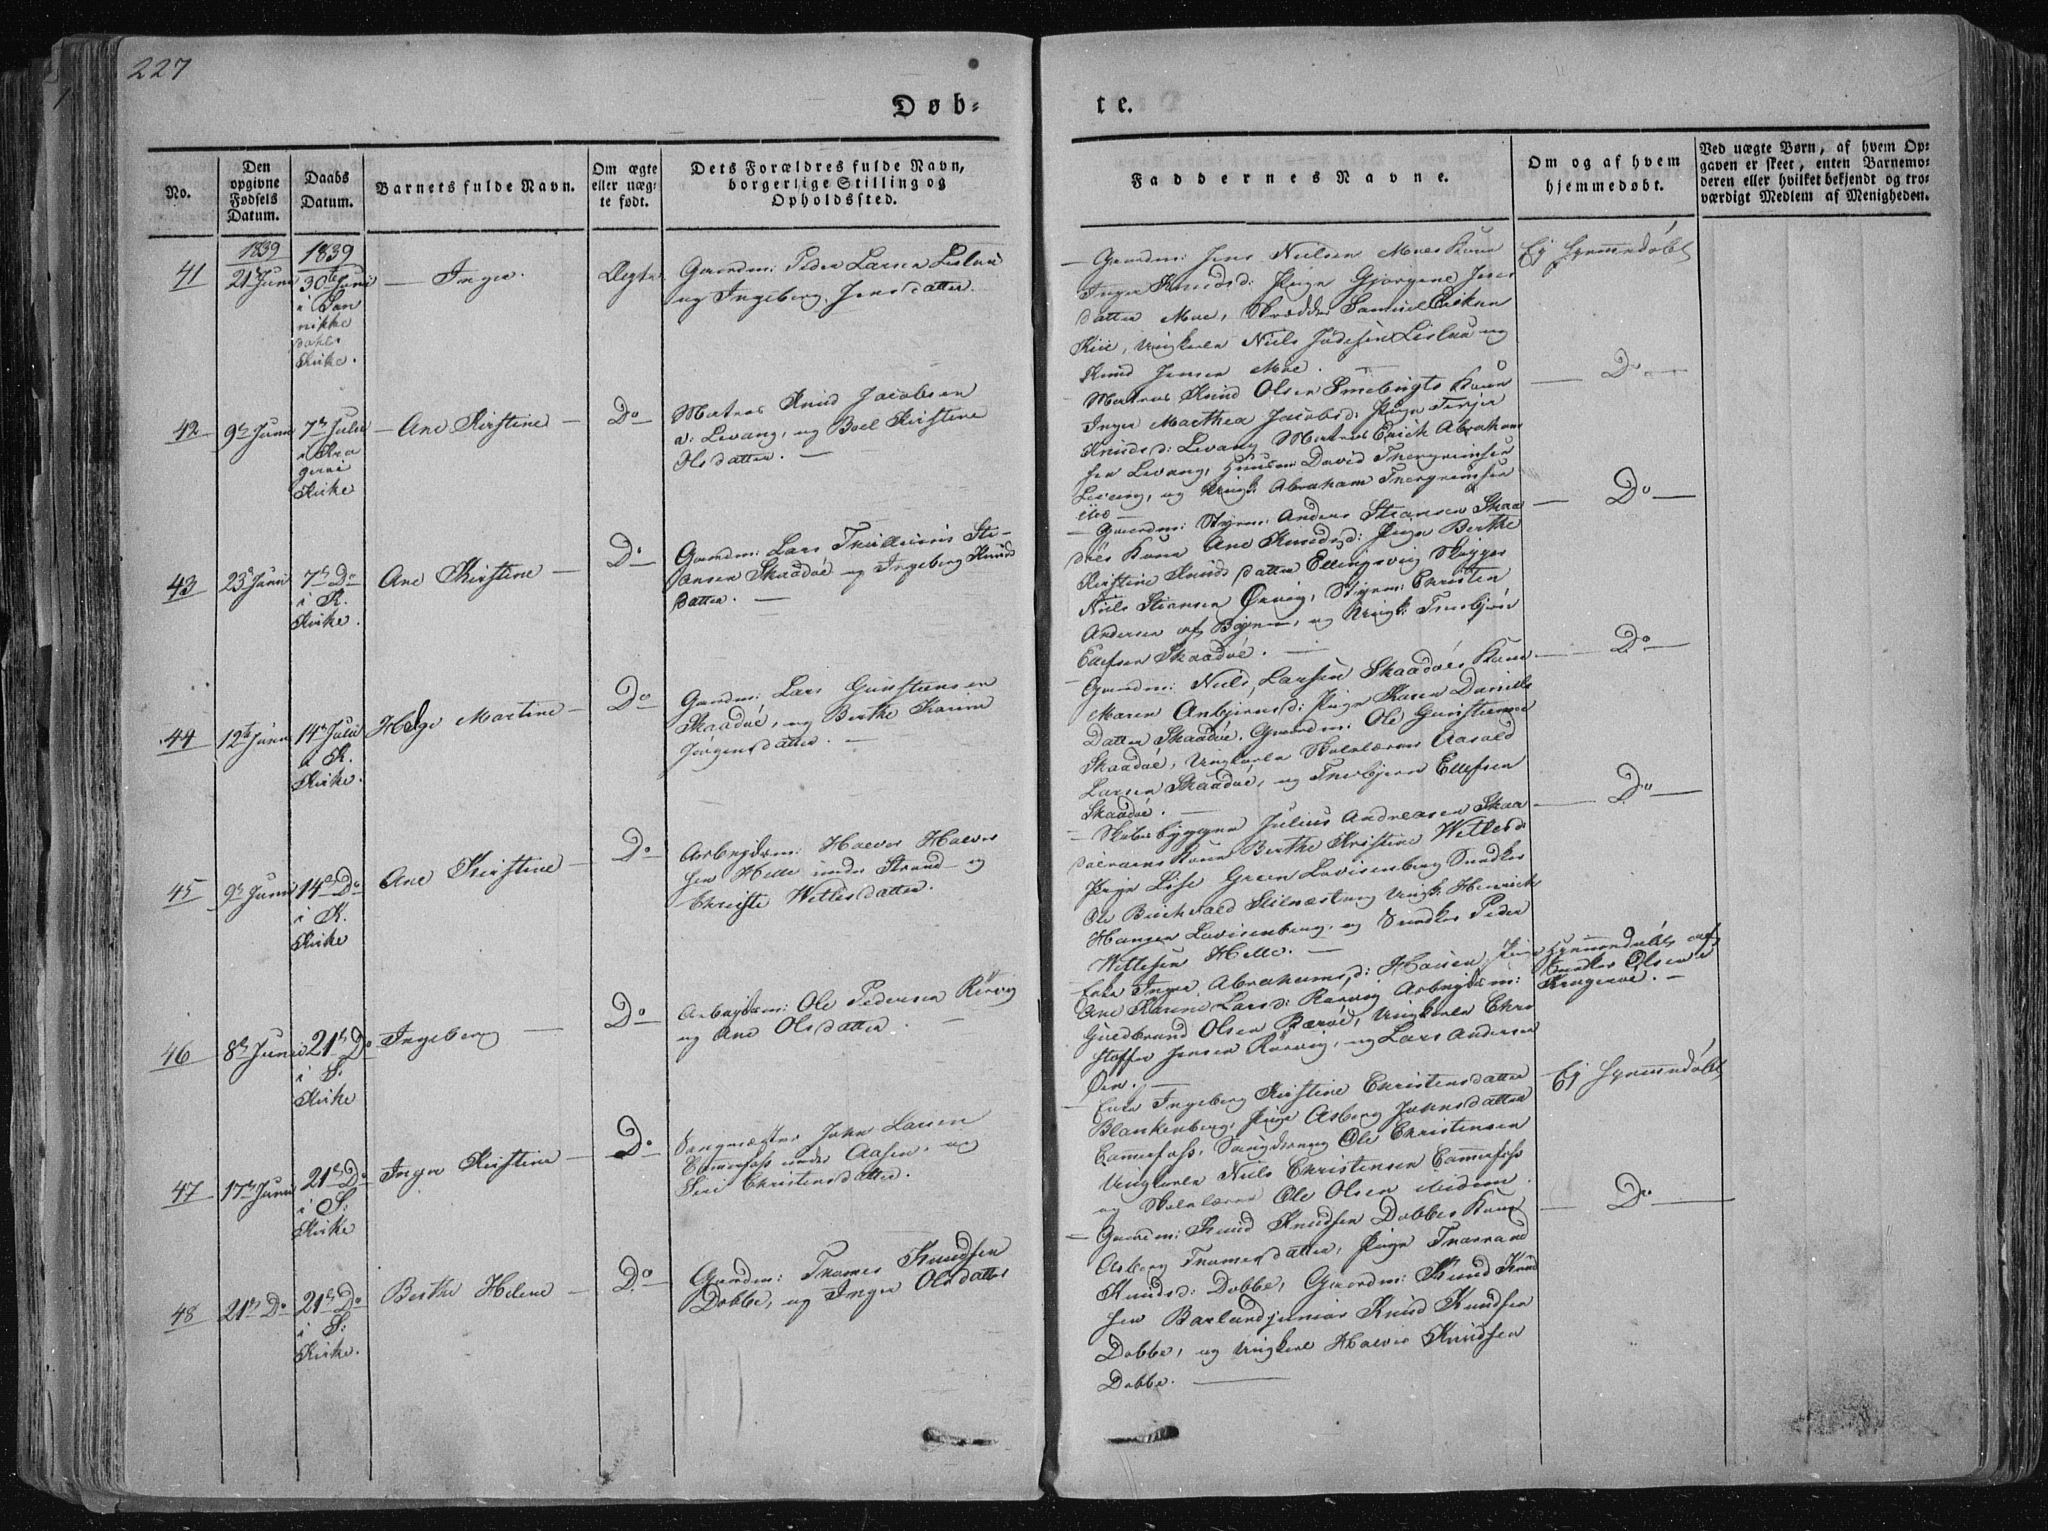 227
Døb-
te.
No.
Den opgivne Fødsels Datum.
Daabs Datum.
Barnets fulde Navn.
Om ægte eller uægte født.
Dets Forældres fulde Navn, borgerlige Stilling og Opholdssted.
Faddernes Navne.
Om og af hvem hjemmedøbt.
Ved uægte Børn, af hvem Opgaven er skeet, enten Barnemoderen eller hvilket bekjendt og troværdigt Medlem af Menigheden.
1839
1839
41
21de Juni
30te Juni
i San
nikke
dahls
Kirke.
Inger.
Ægte
Gaardm: Peder Larsen Lislau
og Ingeberg Jensdatter.
Gaardm: Jens Nielsen Moes Kone
Inger Knudsd: Pige Gjorgene Jens
datter Moe, Skrædder Samuel
Kiil, Ungkarle Niels Lislau og
Knud Jensen Moe.
Ej hjemmedöbt
42
9de Juni
7de Juli
i Kra
geröe
Kirke
Ane Kirstine
Do
Matros Knud Jacobsen
v: Levang, og Boel Kirstine
Olsdatter.
Matros Knud Olsen Smebugts Kone
Inger Marthea Jacobsd: Pige
Knudsd: Levang Matros Erich Abraham
sen Levang, Huusm: David
Levang, og Ungk: Abraham
Do
43
23de Juni
7de Do
i K.
Kirke.
Ane Kirstine
Do
Gaardm: Lars
ansen Skaadöe og Ingeberg Knuds
datter.
Gaardm: Styrm: Anders Stiansen Skaa
döes Kone Ane Knudsd: Pige Berthe
Kirstine Knudsdatter Ellingsvig
Niels Stiansen Styrm: Christen
Andersen af og Ungk: Thorbjön
Ellefsen Skaadöe.
Do
44
12te Juni
14de Juli
i K.
Kirke.
Helge Martine
Do
Gaardm: Lars Gunstensen
Skaadöe, og Berthe Karine
Jörgensdatter.
Gaardm: Niels Larsen Skaadöes Kone
Maren Anbjörnsd: Pige Karen Daniels
Datter Skaadöe. Gaardm: Ole
Skaadöe, Ungkarle Skolelærer Aasold
Larsen Skaadöe, og Thorbjörn Ellefsen
Skaadöe.
Do
45
9de Juni
14de Do
i K.
Kirke
Ane Kirstine
Do
Arbejdsm: Halvor Halvor
sen Helle under Strand og
Christi Wetlesdatter.
Skibsbygger Julius Andreasen
Kone Berthe Kristine Wetlesd:
Pige Lise Green Lovisenberg
Ole og Ungk: Henrich
Hansen Lovisenberg, og Peder
Wetlesen Helle.
Do
46
8de Juni
21de Do
i S:
Kirke
Ingeberg
Do
Arbejdsm: Ole Pedersen Rörvig
og Ane Olsdatter.
Enke Inger Abrahamsd: Pige
Ane Karine Larsd: Rörvig Arbejdsm:
Guldbrand Olsen Ungkarle Chri
stoffer Jensen Rörvig, og Lars Andersen
Öen.
Hjemmedöbt af
Olsen
Krageröe.
47
17de Juni
21de Do
i S:
Kirke
Inger Kirstine
Do
Saugmester John Larsen
Cammerfoss under Aasen, og
Siri Christensdatter.
Enke Ingeberg Kirstine Christensdatter
Blankenberg, Pige Asberg Johnsdatter
Cammerfoss, Ole Christensen
Ungkarle Niels Christensen Cammerfoss
og Skolelærer Ole Olsen
Ej hjemmedöbt
48
21de Do
21de Do
i S:
Kirke.
Berthe Helene
Do
Gaardm: Thomes Knudsen
Dobbe, og Inger Olsdatter
Gaardm: Knud Knudsen Dobbes Kone
Asberg Thomesdatter, Pige
Knudsd: Dobbe, Gaardm: Knud Knud
sen Barland junior Knud Knudsen
Dobbe, og Ungkarl Halvor Knudsen
Dobbe.
Do